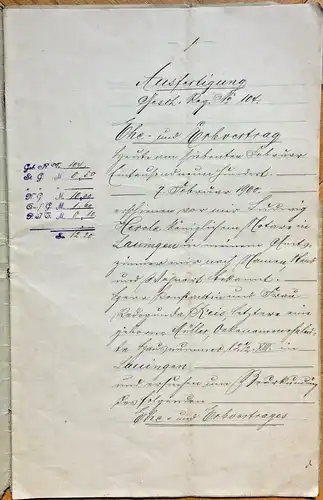 1.
Ausfertigung
Gesch. Reg. Nº 104.
Ehe- und Erbvertrag
Heute am siebenten Februar
Eintausendneunhundert
7. Februar 1900.
erschienen vor mir Ludwig
königlichem Notare in
Lauingen in meinem Amts-
zimmer mir nach Namen, Stand
und Wohnort bekannt:
Herr Konstantin und Frau
Radegundis Letztere eine
geborene Müller, Oekonomeneheleu-
te Hausnummer in
Lauingen
und ersuchen um Beurkundung
des folgenden
Ehe- und Erbvertrages
104
M 10.00
12.20